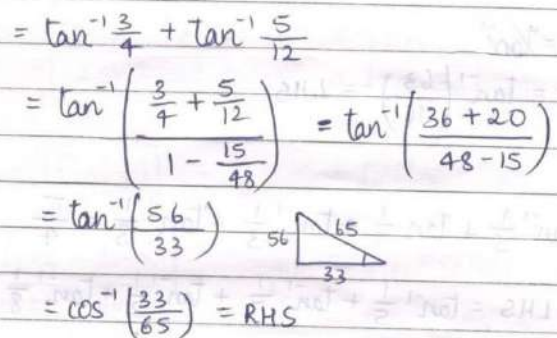 = tan⁻¹ 3/4 + tan⁻¹ 5/12
= tan⁻¹ ( (3/4 + 5/12) / (1 - 15/48) ) = tan⁻¹ ( (36 + 20) / (48 - 15) )
= tan⁻¹ ( 56/33 ) 56 65 33
= cos⁻¹ ( 33/65 ) = RHS